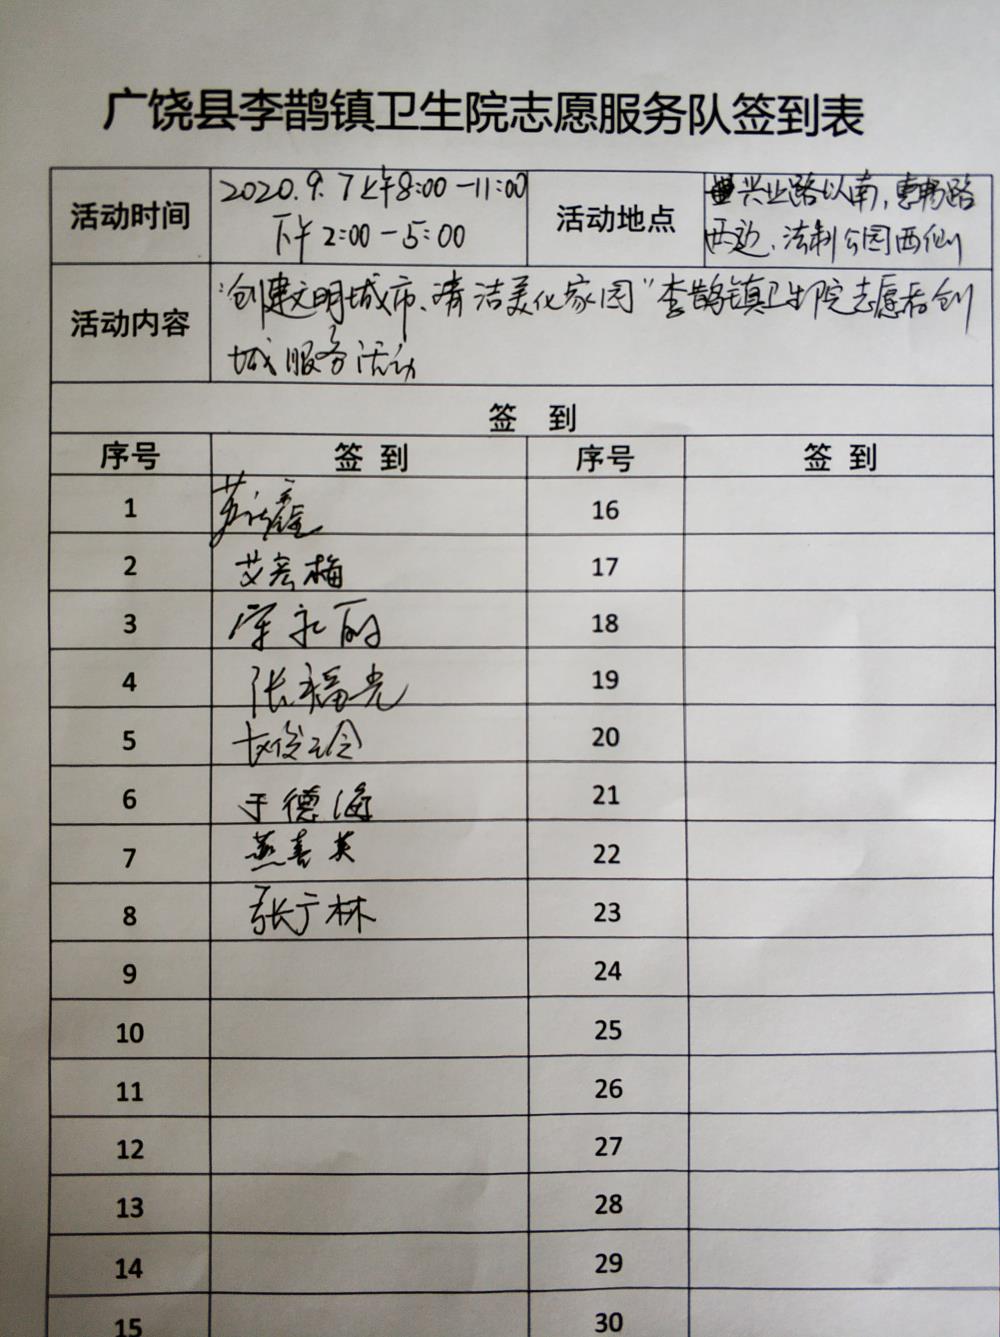 广饶县李鹊镇卫生院志愿服务队签到表
活动时间
2020.9.7上午8:00-11:00
下午2:00-5:00
活动地点
兴业路以南,惠畅路
两边、法制公园西侧
活动内容
"创建文明城市、清洁美化家园"李鹊镇卫生院志愿者创
城服务活动
签 到
序号 签 到 序号 签 到
1 16
2 艾宏梅 17
3 永丽 18
4 张福光 19
5 20
6 于德海 21
7 燕喜英 22
8 张广林 23
9 24
10 25
11 26
12 27
13 28
14 29
15 30